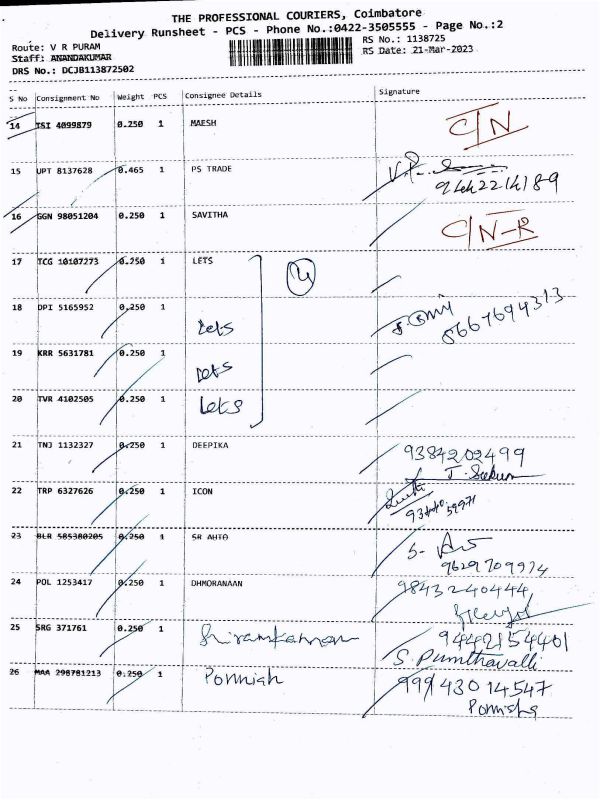 THE PROFESSIONAL COURIERS, Coimbatore
Delivery Runsheet - PCS - Phone No.:0422-3505555 - Page No.:2
Route: V R PURAM
RS No.: 1138725
Staff: ANANDAKUMAR
RS Date: 21-Mar-2023
DRS No.: DCJB113872502
S No Consignment No Weight PCS Consignee Details Signature
14 TSI 4099879 0.250 1 MAESH C/N
15 UPT 8137628 0.465 1 PS TRADE
16 GGN 98051204 0.250 1 SAVITHA C/N-R
17 TCG 10107273 0.250 1 LETS 4
18 DPI 5165952 0.250 1 Lets 8667694313
19 KRR 5631781 0.250 1 Lets
20 TVR 4102505 0.250 1 Lets
21 TNJ 1132327 0.250 1 DEEPIKA 9384202499
22 TRP 6327626 0.250 1 ICON
23 BLR 585380205 0.250 1 SR AUTO
9629709974
24 POL 1253417 0.250 1 DHMORANAAN 9843240444
25 SRG 371761 0.250 1 Sriramkannan 9442154401
S. Punithavalli
26 MAA 298781213 0.250 1 Ponniah 99943014547